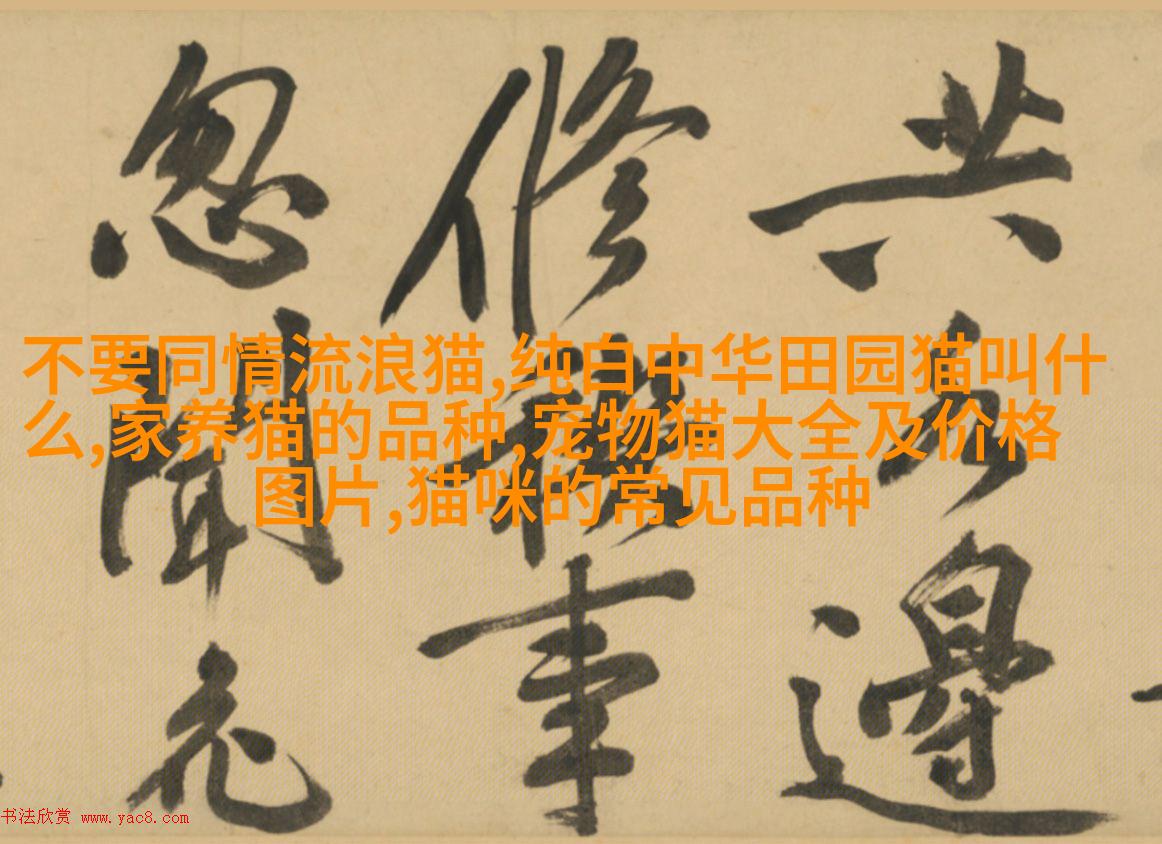 共邊
修禊事
忽聞
不要同情流浪猫,纯白中华田园猫叫什
么,家养猫的品种,宠物猫大全及价格
图片,猫咪的常见品种
书法欣赏 www.yac8.com